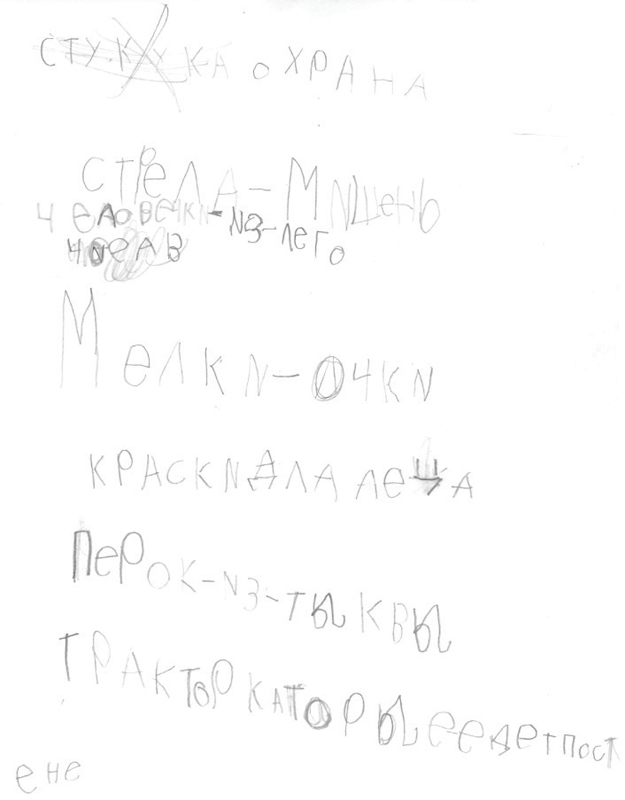 ОХРАНА
СТРЕЛА-МИШЕНЬ
ЧЕЛОВЕЧКИ-ИЗ-ЛЕГО
МЕЛКИ-ОЧКИ
КРАСКИДЛА ЛЕЦА
ПЕРОК-ИЗ-ТЫКВЫ
ТРАКТОР КАТОРЫЕ ЕЕДЕТПОСТ
ЕНЕ